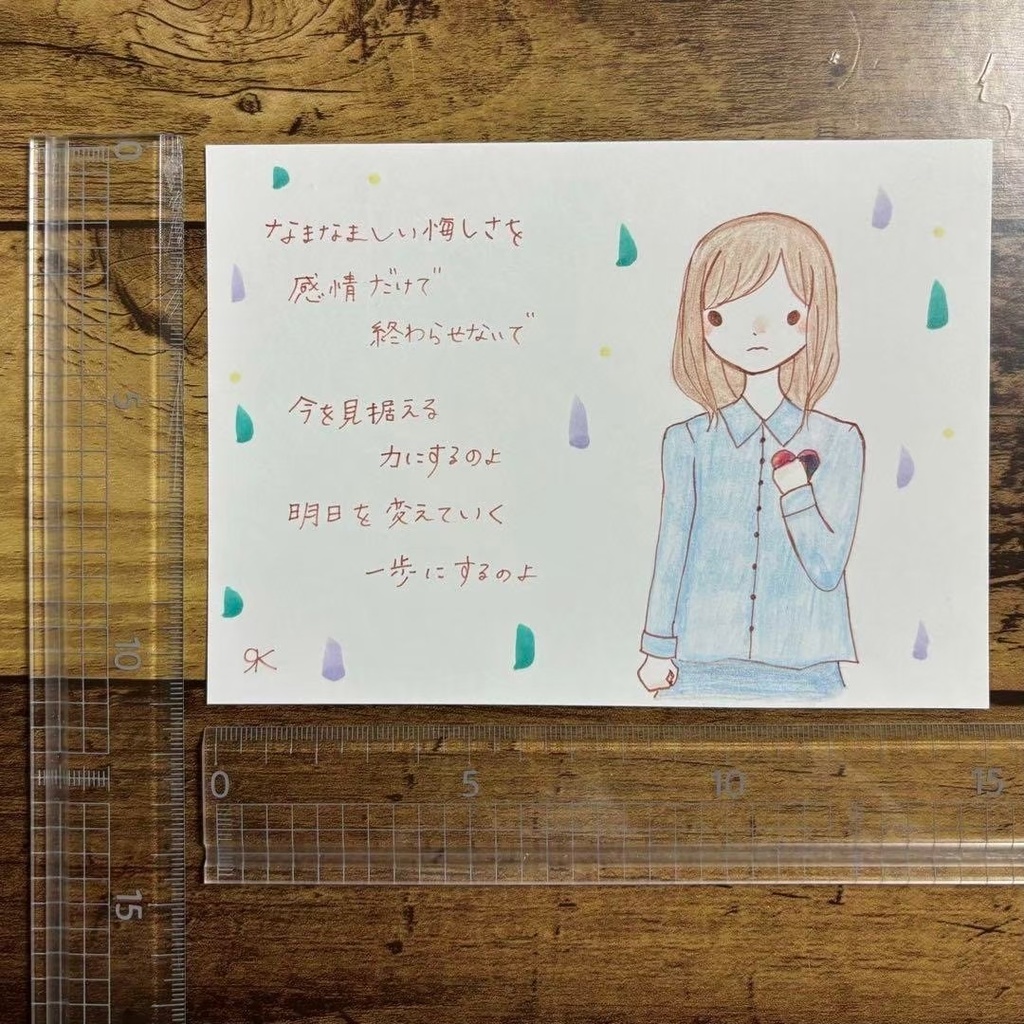 なまなましい悔しさを
感情だけで
終わらせないで
今を見据える
力にするのよ
明日を変えていく
一歩にするのよ
0
5
10
15
0 5 10 15